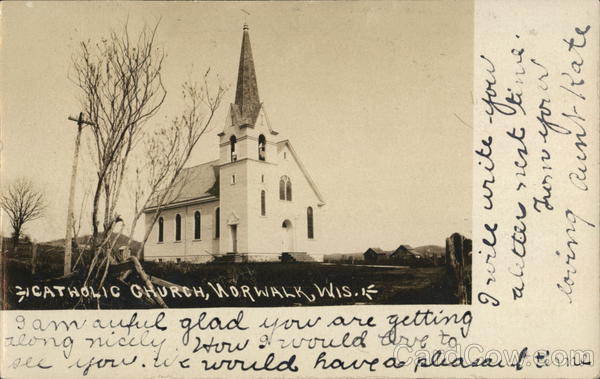 CATHOLIC CHURCH, NORWALK, WIS.
I am auful glad you are getting
along nicely. How I would love to
see you. we would have a pleasant ti-
I will write you
a letter next time.
from your
loving aunt Kate
CardCow.com